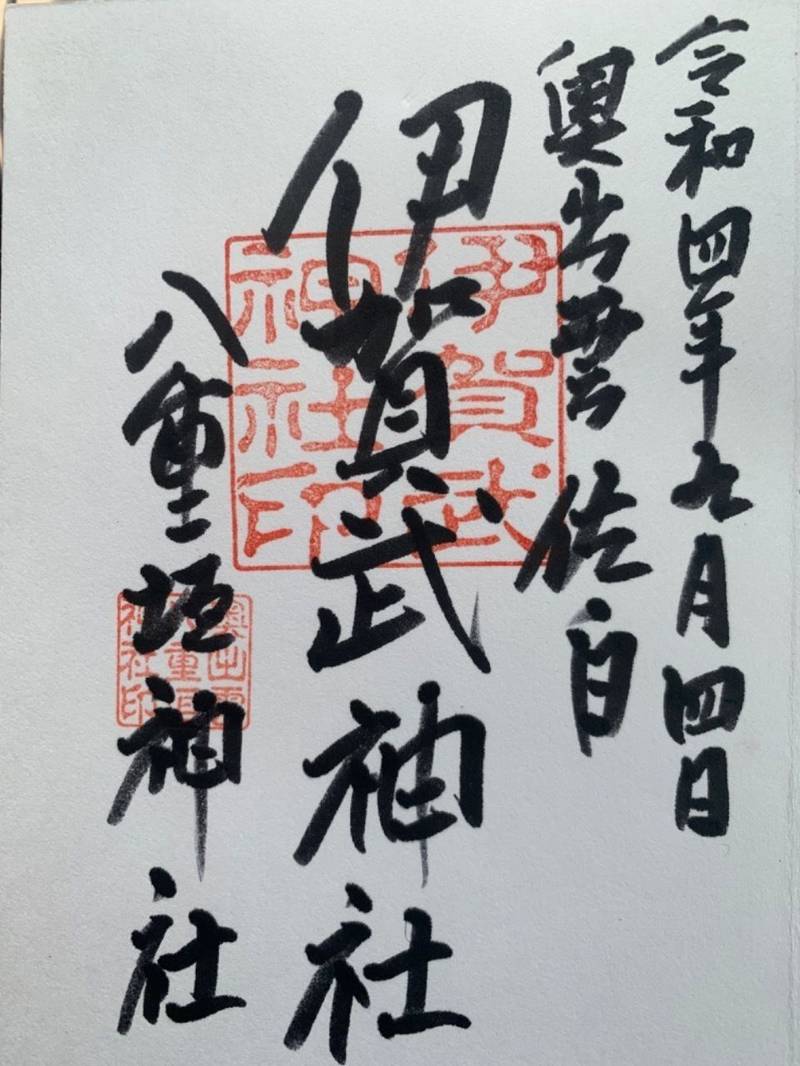 令和四年九月四日
奥出雲佐白
伊賀武神社
八重垣神社
伊賀武
神社印
奥出雲
八重垣
神社印